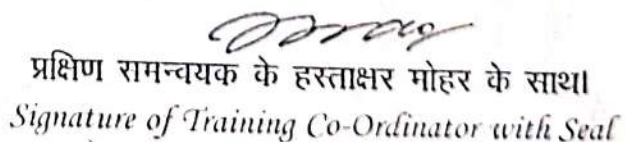 प्रक्षिण समन्वयक के हस्ताक्षर मोहर के साथ।
Signature of Training Co-Ordinator with Seal